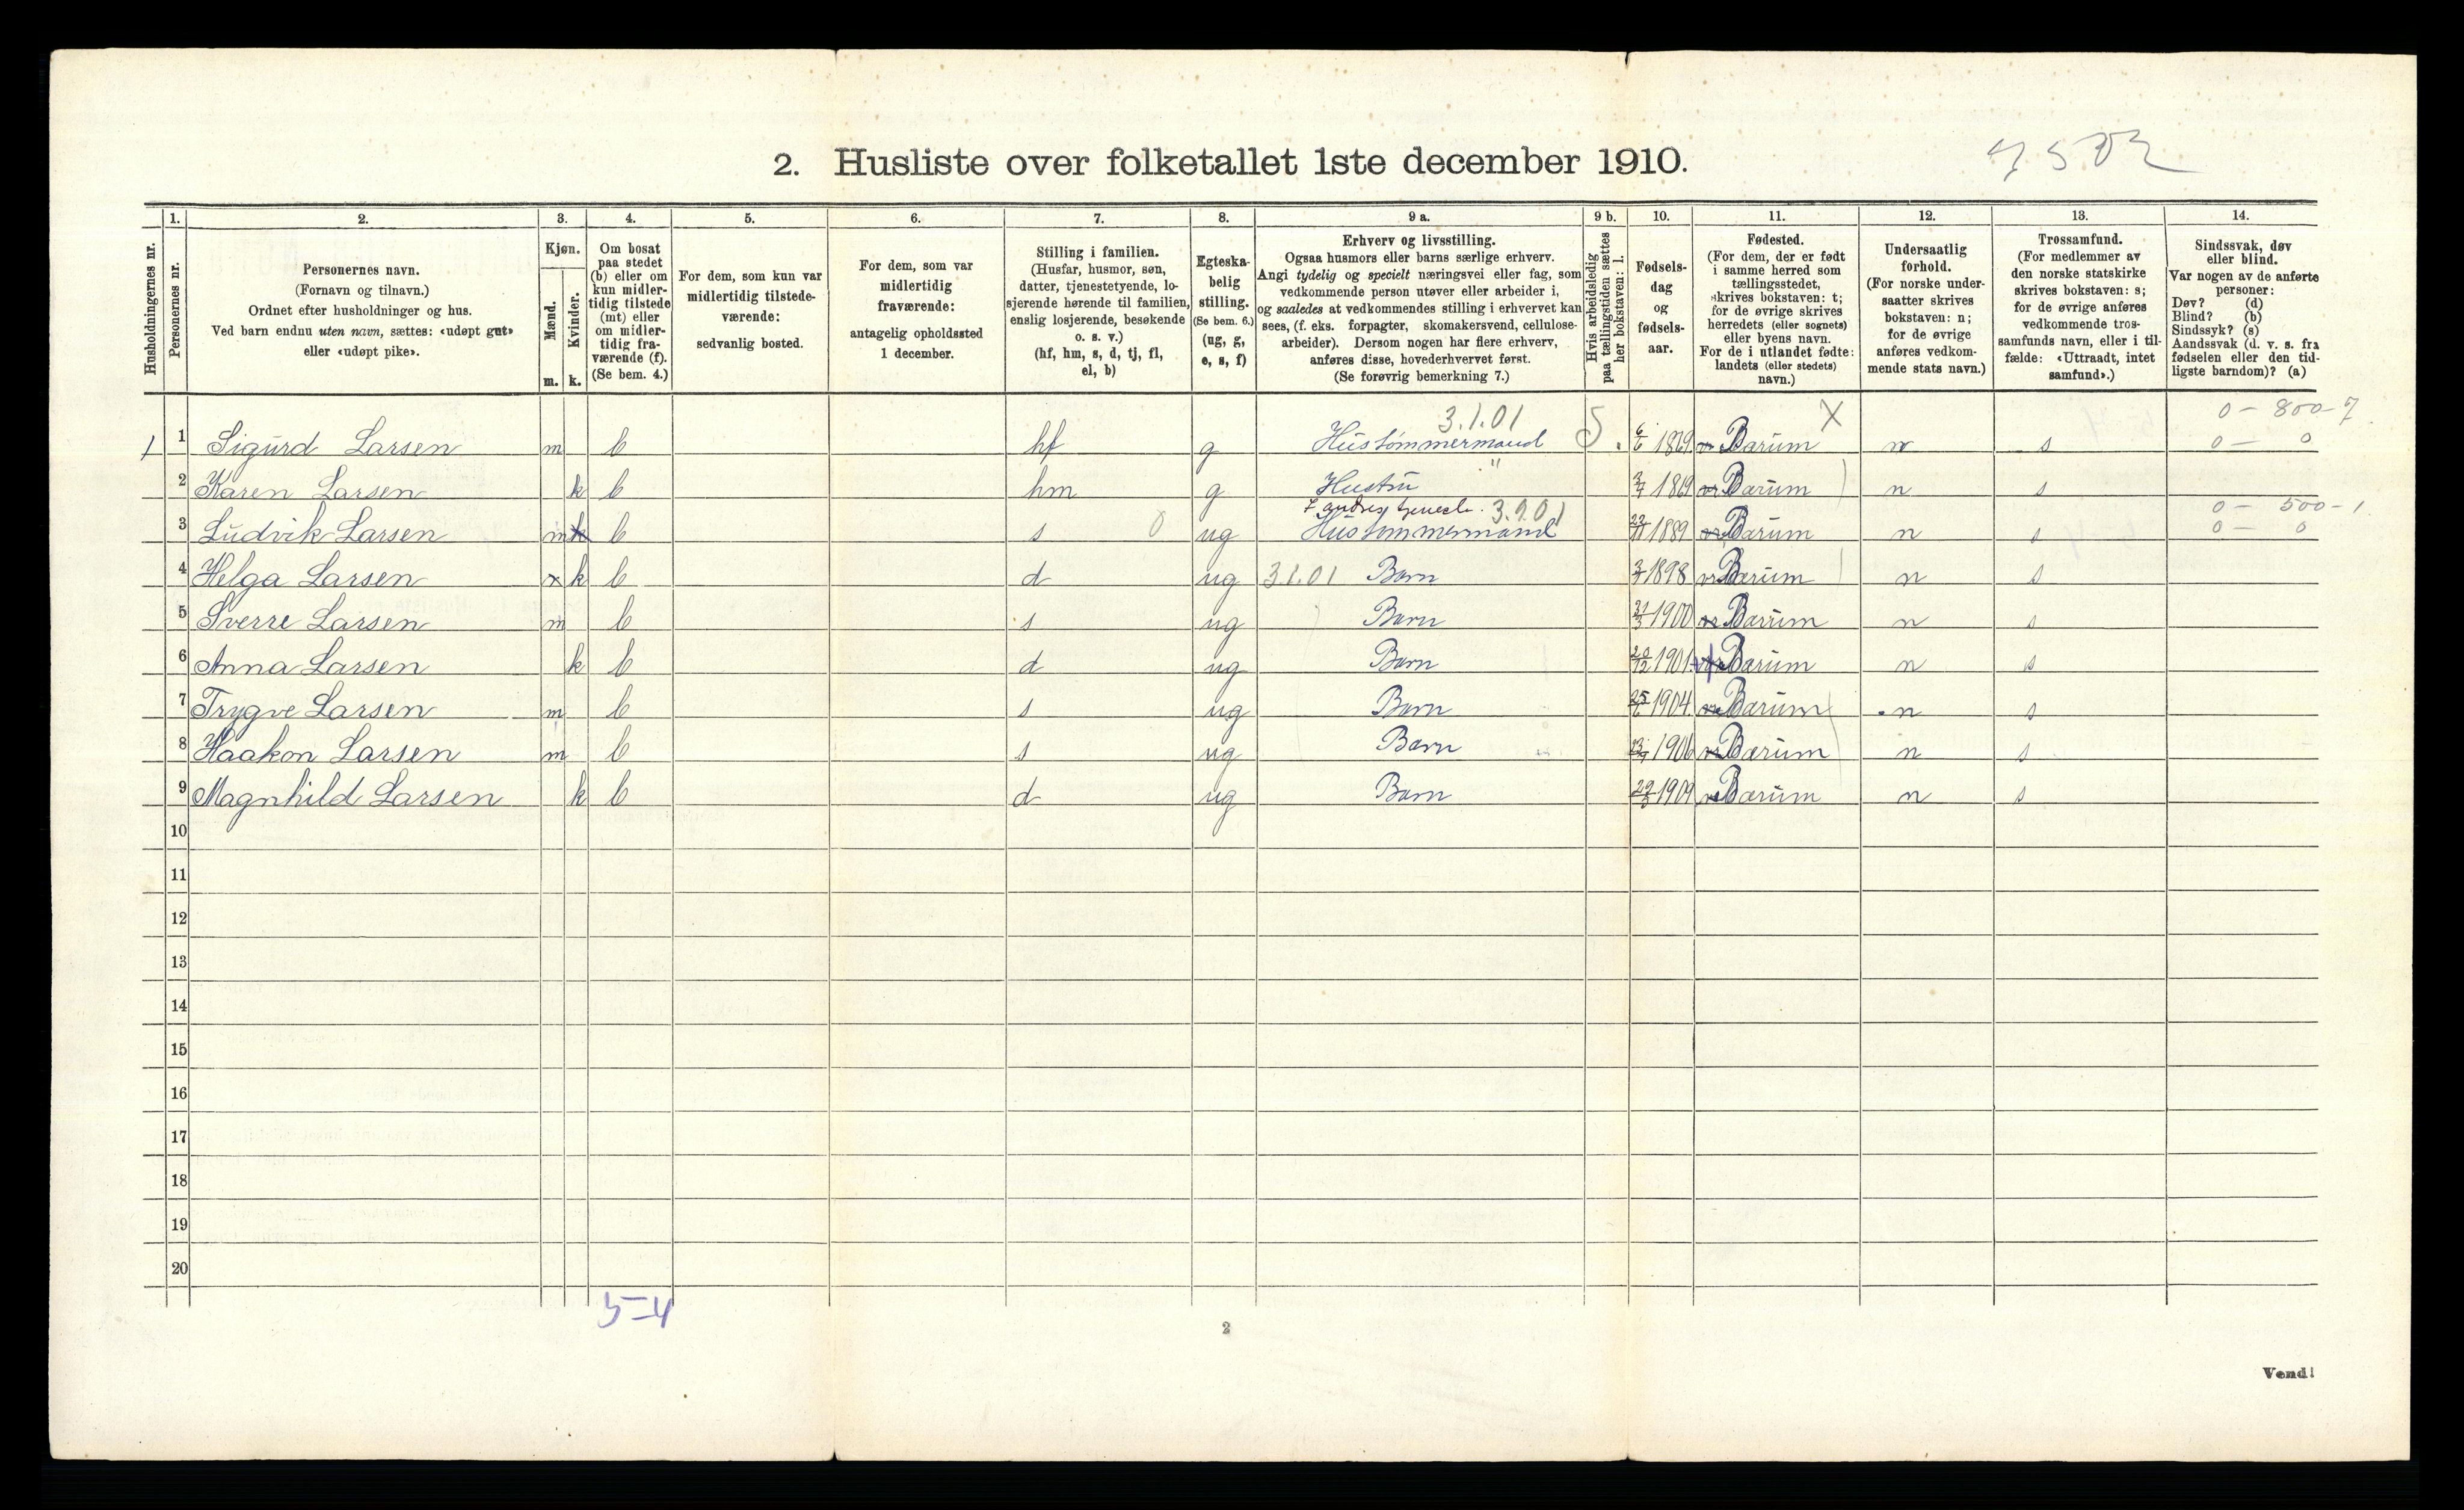 2. Husliste over folketallet 1ste december 1910.
Husholdningernes nr.
1.
Personernes nr.
2.
Personernes navn.
(Fornavn og tilnavn.)
Ordnet efter husholdninger og hus.
Ved barn endnu uten navn, sættes: «udøpt gut»
eller «udøpt pike».
3.
Kjøn.
Mænd.
m.
Kvinder.
k.
4.
Om bosat
paa stedet
(b) eller om
kun midler-
tidig tilstede
(mt) eller
om midler-
tidig fra-
værende (f).
(Se bem. 4.)
5.
For dem, som kun var
midlertidig tilstede-
værende:
sedvanlig bosted.
6.
For dem, som var
midlertidig
fraværende:
antagelig opholdssted
1 december.
7.
Stilling i familien.
(Husfar, husmor, søn,
datter, tjenestetyende, lo-
sjerende hørende til familien,
enslig losjerende, besøkende
o. s. v.)
(hf, hm, s, d, tj, fl,
el, b)
8.
Egteska-
belig
stilling.
(Se bem. 6.)
(ug, g,
e, s, f)
9 a.
Erhverv og livsstilling.
Ogsaa husmors eller barns særlige erhverv.
Angi tydelig og specielt næringsvei eller fag, som
vedkommende person utøver eller arbeider i,
og saaledes at vedkommendes stilling i erhvervet kan
sees, (f. eks. forpagter, skomakersvend, cellulose-
arbeider). Dersom nogen har flere erhverv,
anføres disse, hovederhvervet først.
(Se forøvrig bemerkning 7.)
9 b.
Hvis arbeidsledig
paa tællingstiden sættes
her bokstaven: l.
10.
Fødsels-
dag
og
fødsels-
aar.
11.
Fødested.
(For dem, der er født
i samme herred som
tællingsstedet,
skrives bokstaven: t;
for de øvrige skrives
herredets (eller sognets)
eller byens navn.
For de i utlandet fødte:
landets (eller stedets)
navn.)
12.
Undersaatlig
forhold.
(For norske under-
saatter skrives
bokstaven: n;
for de øvrige
anføres vedkom-
mende stats navn.)
13.
Trossamfund.
(For medlemmer av
den norske statskirke
skrives bokstaven: s;
for de øvrige anføres
vedkommende tros-
samfunds navn, eller i til-
fælde: «Uttraadt, intet
samfund».)
14.
Sindssvak, døv
eller blind.
Var nogen av de anførte
personer:
Døv? (d)
Blind? (b)
Sindssyk? (s)
Aandssvak (d. v. s. fra
fødselen eller den tid-
ligste barndom)? (a)
3.1.01 X 0 - 800 - 7
1 1 Sigurd Larsen m b hf g Hustømmermand S. 6/6 1869 Bærum n s 0 - 0
2 Karen Larsen k b hm g Hustru " 1869 Bærum n s
3.1.01 0 - 500 - 1
3 Ludvik Larsen m b s 0 ug Hustømmermand 1889 Bærum n s 0 - 0
4 Helga Larsen k b d ug 3.1.01 Barn 1898 Bærum n s
5 Sverre Larsen m b s ug Barn 1900 Bærum n s
6 Anna Larsen k b d ug Barn 20/12 1901 Bærum n s
7 Trygve Larsen m b s ug Barn 1904 Bærum n s
8 Haakon Larsen m b s ug Barn 1906 Bærum n s
9 Magnhild Larsen k b d ug Barn 1909 Bærum n s
10
11
12
13
14
15
16
17
18
19
20
5=4
2
Vend!